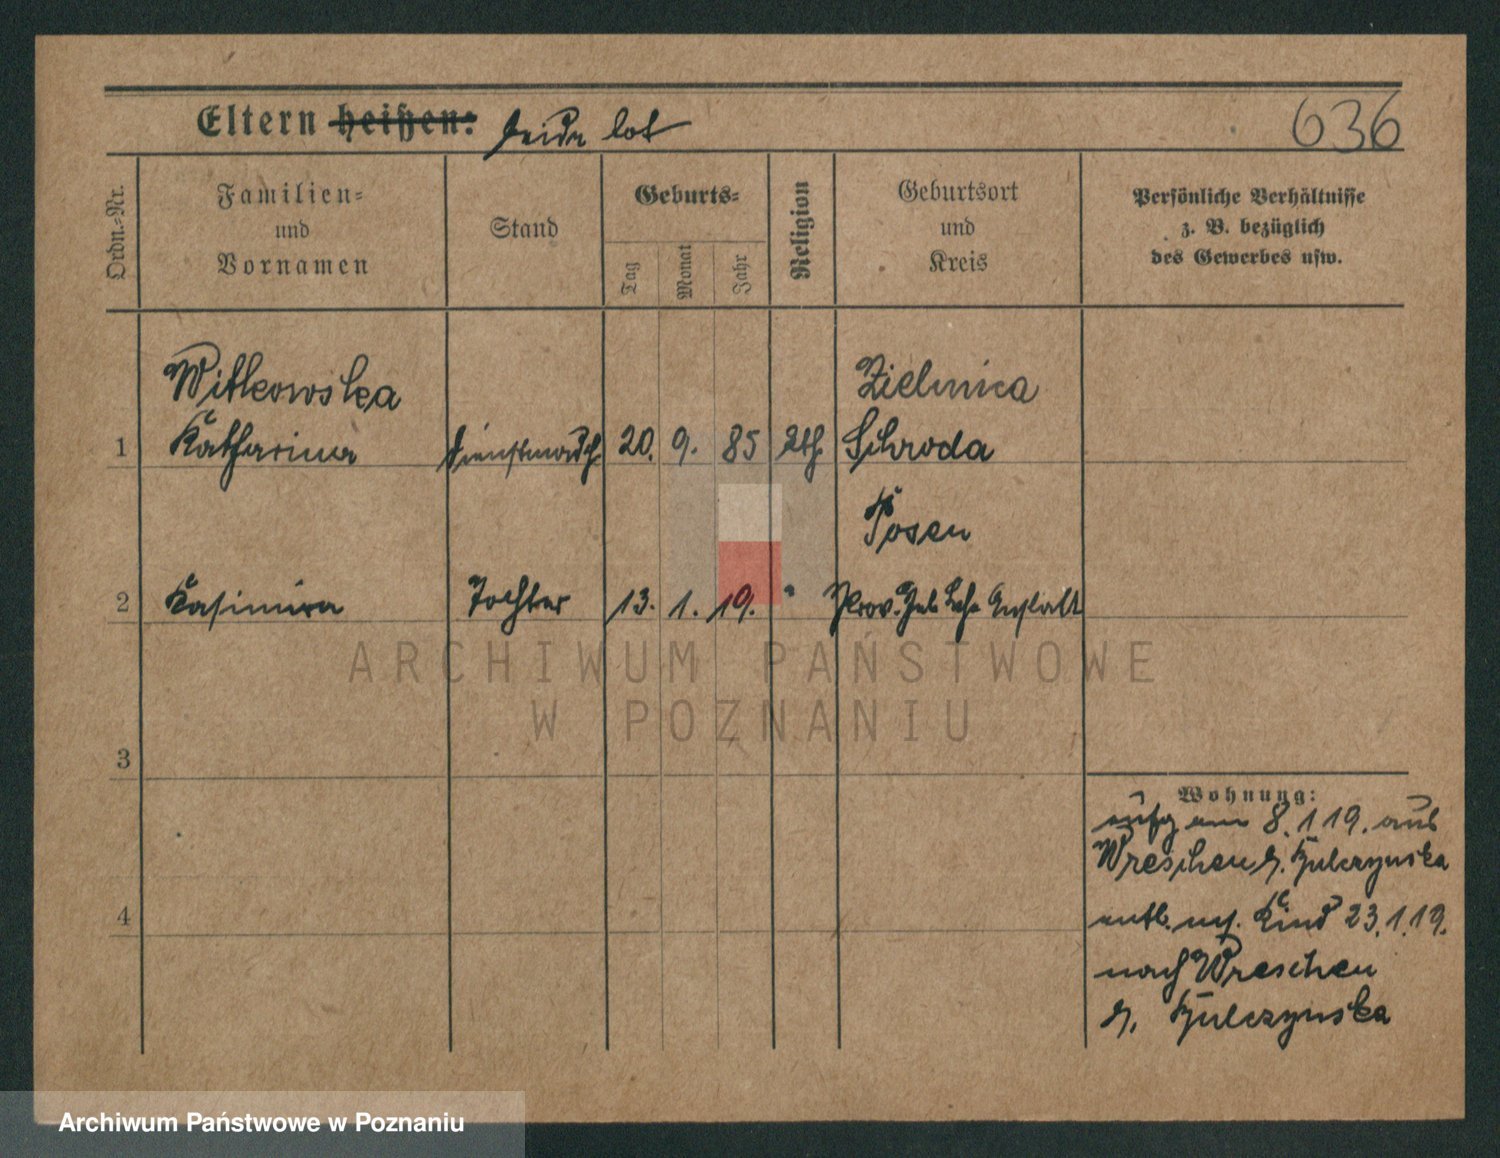 Eltern heißen: beide tot
636
Ordn.-Nr.
Familien=
und
Vornamen
Stand
Geburts=
Tag
Monat
Jahr
Religion
Geburtsort
und
Kreis
Persönliche Verhältnisse
z. B. bezüglich
des Gewerbes usw.
Witkowska
Zielinica
1 Katharina Dienstmädch. 20. 9. 85 kth. Schroda
Posen
2 Kasimira Tochter 13. 1. 19. " Prov. Heb. Lehr Anstalt
3
Wohnung:
aufg am 8.1 19. aus
Wreschen b. Hulczynska
4
entl. m. Kind 23.1.19.
nach Wreschen
b. Hulczynska
ARCHIWUM PAŃSTWOWE
W POZNANIU
Archiwum Państwowe w Poznaniu